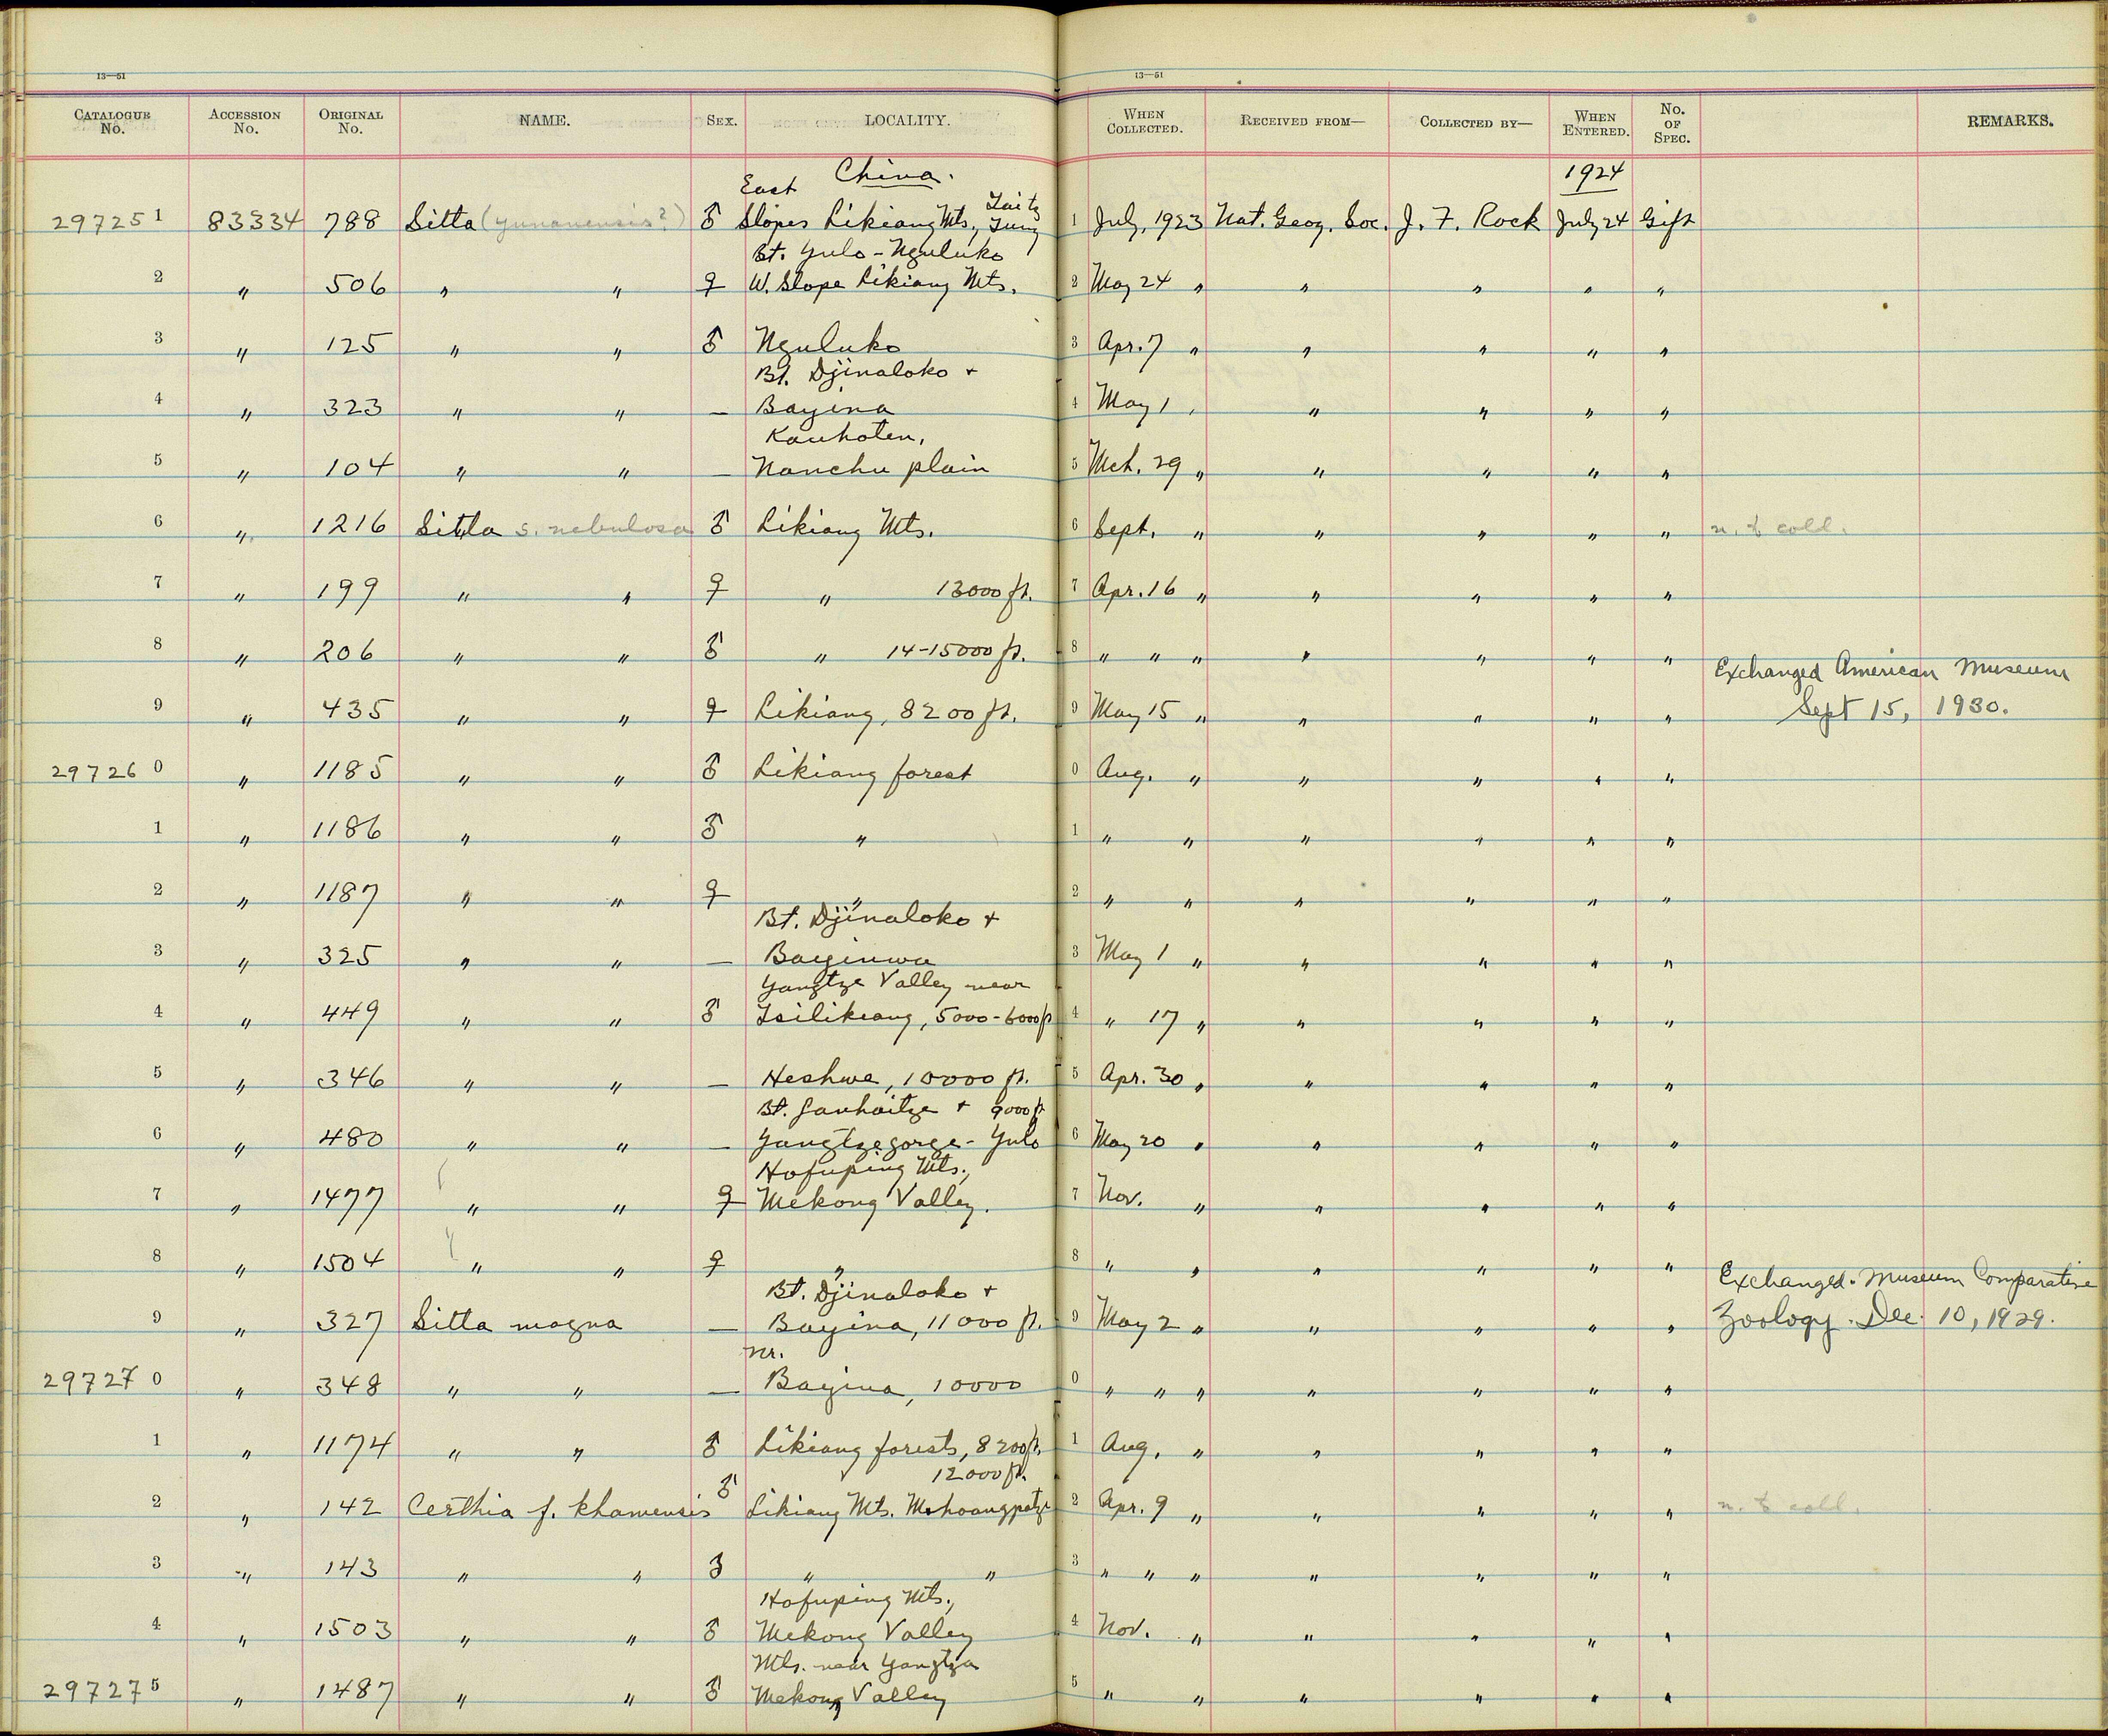 13—51 13—51
CATALOGUE No. ACCESSION No. ORIGINAL No. NAME. SEX. LOCALITY. WHEN COLLECTED. RECEIVED FROM— COLLECTED BY— WHEN ENTERED. No. OF SPEC. REMARKS.
China. 1924
East
29725 1 83334 788 Sitta (yunanensis?) ♂ Slopes Likiang Mts., 1 July, 1923 Nat. Geog. Soc. J. F. Rock July 24 Gift
Bt. Yulo - Nguluko
2 " 506 " " ♀ W. Slope Likiang Mts. 2 May 24 " " " " "
3 " 125 " " ♂ Nguluko 3 Apr. 7 " " " " "
Bt. Djinaloko +
4 " 323 " " — Bayina 4 May 1 " " " " "
Kauhoten,
5 " 104 " " — Nanchu plain 5 Mch. 29 " " " " "
6 " 1216 Sitta s. nebulosa ♂ Likiang Mts. 6 Sept. " " " " " n. to coll.
7 " 199 " " ♀ " 13000 ft. 7 Apr. 16 " " " " "
8 " 206 " " ♂ " 14-15000 ft. 8 " " " " " " "
Exchanged American Museum
9 " 435 " " ♀ Likiang, 8200 ft. 9 May 15 " " " " " Sept 15, 1930.
29726 0 " 1185 " " ♂ Likiang forest 0 Aug. " " " " "
1 " 1186 " " ♂ " 1 " " " " " "
2 " 1187 " " ♀ " 2 " " " " " "
Bt. Djinaloko +
3 " 325 " " — Bayinwa 3 May 1 " " " " "
Yangtze Valley near
4 " 449 " " ♂ Tsilikiang, 5000-6000 ft 4 " 17 " " " " "
5 " 346 " " — Heshwe, 10000 ft. 5 Apr. 30 " " " " "
Bt. Ganhaitze + 9000 ft
6 " 480 " " — Yangtze gorge - Yulo 6 May 20 " " " " "
Hofuping Mts.,
7 " 1477 " " ♀ Mekong Valley. 7 Nov. " " " " "
8 " 1504 " " ♀ " 8 " " " " " "
Bt. Djinaloko + Exchanged. Museum Comparative
9 " 327 Sitta magna — Bayina, 11000 ft. 9 May 2 " " " " " Zoology. Dec. 10, 1929.
nr.
29727 0 " 348 " " — Bayina, 10000 0 " " " " " " "
1 " 1174 " " ♂ Likiang forests, 8200 ft. 1 Aug. " " " " "
12000 ft.
2 " 142 Certhia f. khamensis ♂ Likiang Mts. Mohoangpatze 2 Apr. 9 " " " " " n. to coll.
3 " 143 " " ♂ " " 3 " " " " " " "
Hofuping Mts.,
4 " 1503 " " ♂ Mekong Valley 4 Nov. " " " " "
Mts. near Yangtza
29727 5 " 1487 " " ♂ Mekong Valley 5 " " " " " "